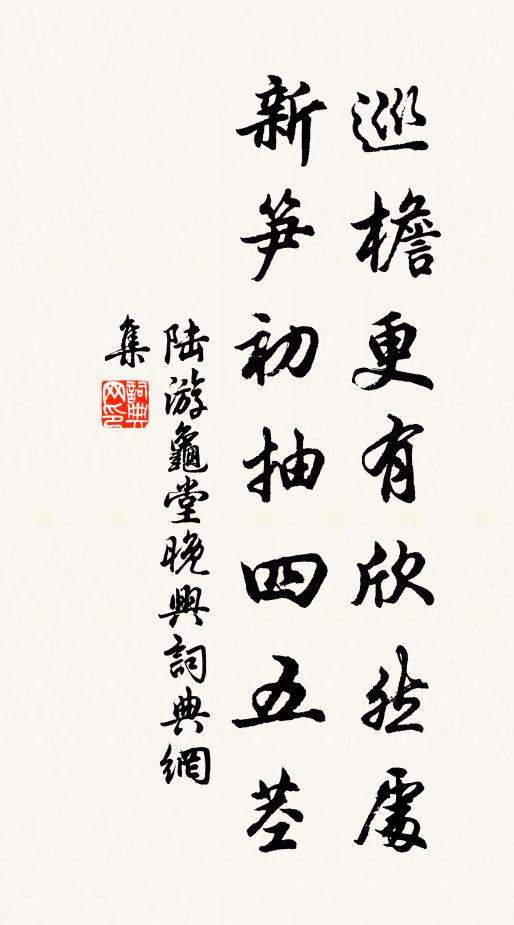 巡檐更有欣然處
新笋初抽四五莖
陸游龜堂晚興詞典網
集
詞典网印